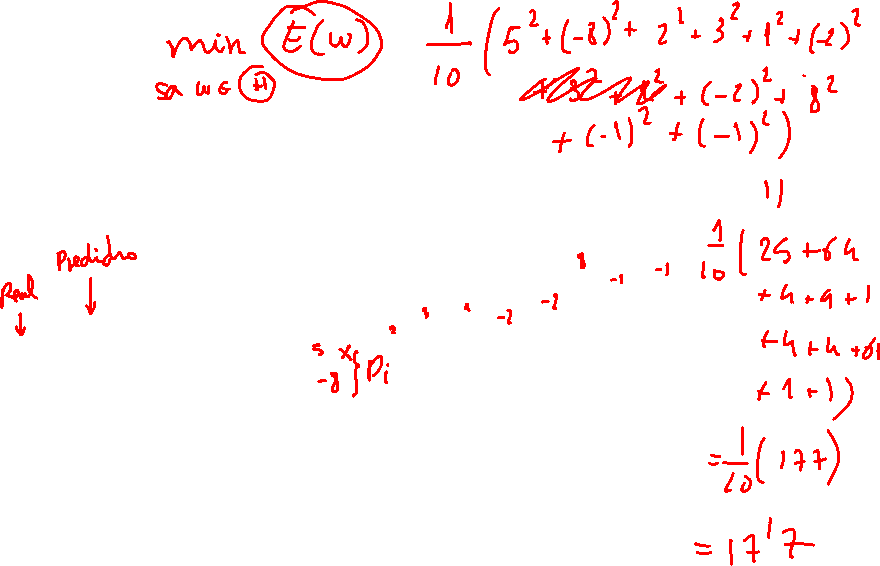 min E(w)
sa w ∈ H
1/10 (5² + (-8)² + 2² + 3² + 1² + (-2)²
+ (-2)² + 8²
+ (-1)² + (-1)²)
||
1/10 (25 + 64
+ 4 + 9 + 1
+ 4 + 4 + 64
+ 1 + 1)
= 1/10 (177)
= 17'7
Real
↓
↓
5
-8 } Di
2 3 1 -2 -2 8 -1 -1